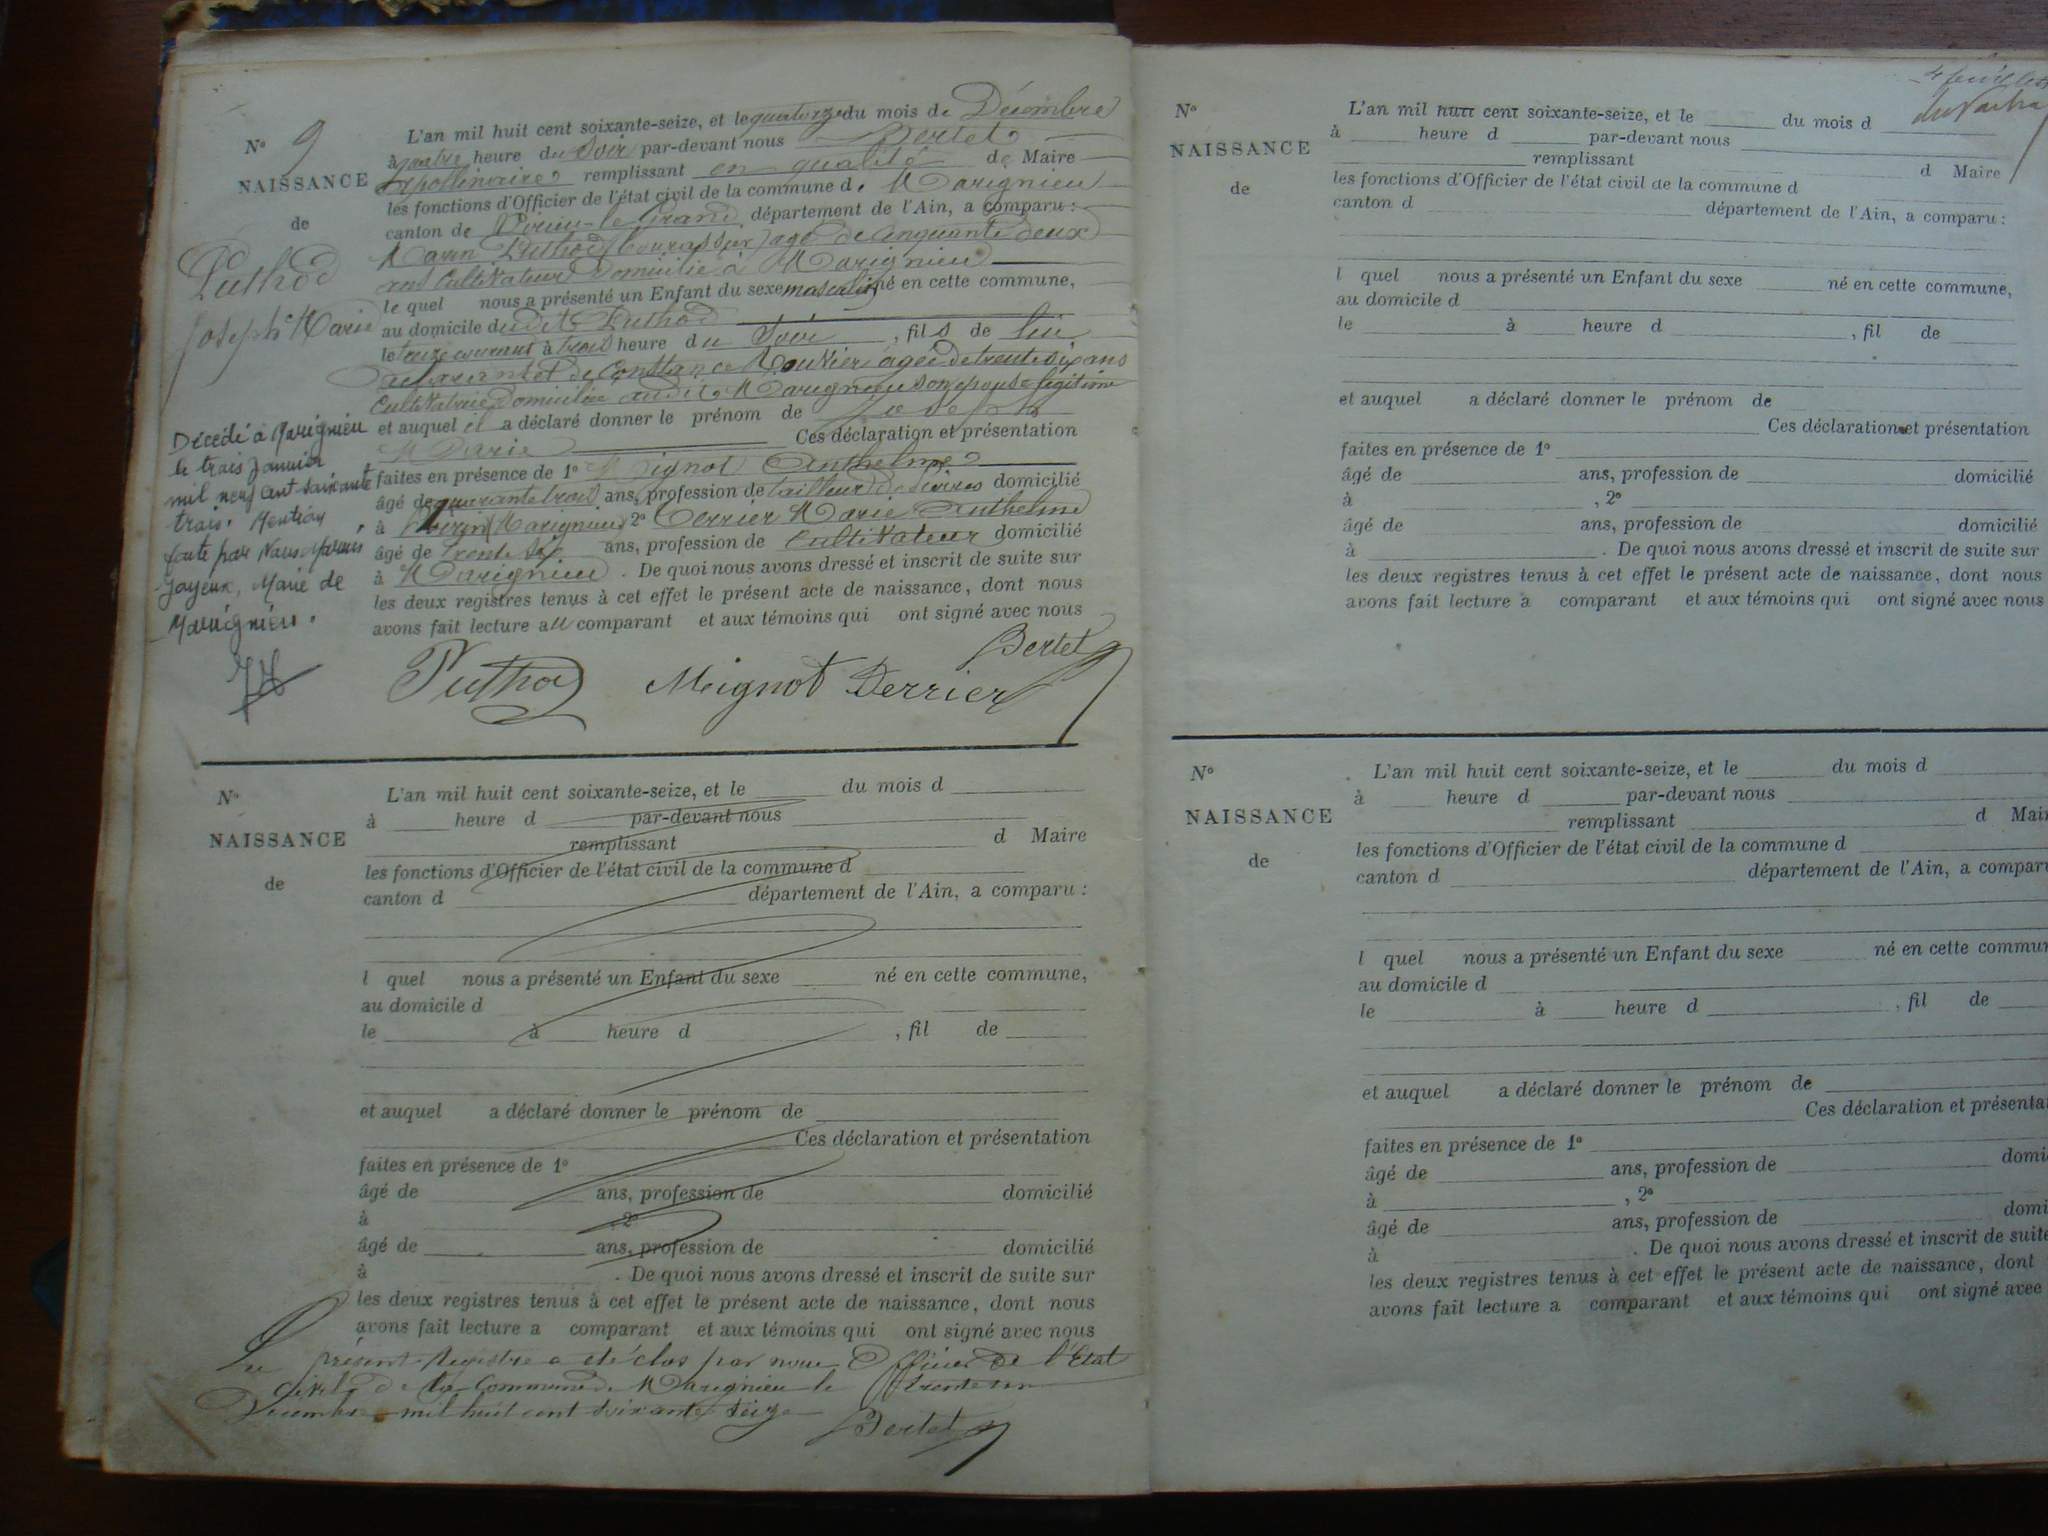 Nº 9
NAISSANCE
de
Puthod
Joseph Marie
L'an mil huit cent soixante-seize, et le quatorze du mois de Décembre
à quatre heure du Soir par-devant nous Bertet
Apollinaire remplissant en qualité de Maire
les fonctions d'Officier de l'état civil de la commune d. Marignieu
canton de Virieu-le-Grand département de l'Ain, a comparu :
Marin Puthod agé de cinquante deux
ans Cultivateur Domicilié à Marignieu
le quel nous a présenté un Enfant du sexe masculin né en cette commune,
au domicile dudit Puthod
le treize courant à trois heure du Soir , fils de lui
déclarant et de Constance Mouvier agée de trente six ans
Cultivatrice Domiciliée audit Marignieu son epouse légitime
et auquel il a déclaré donner le prénom de Joseph
Marie Ces déclaration et présentation
faites en présence de 1º Mignot Anthelme
âgé de quarante trois ans, profession de tailleur de pierres domicilié
à Marignieu 2º Derrier Marie Anthelme
âgé de trente six ans, profession de Cultivateur domicilié
à Marignieu . De quoi nous avons dressé et inscrit de suite sur
les deux registres tenus à cet effet le présent acte de naissance, dont nous
avons fait lecture au comparant et aux témoins qui ont signé avec nous
Bertet
Puthod Meignot Derrier
Décédé à Marignieu
le trois Janvier
mil neuf cent soixante
trois. Mention
faite par Nous
Joyeux, Maire de
Marignieu.
Nº
NAISSANCE
de
L'an mil huit cent soixante-seize, et le du mois d
à heure d par-devant nous
remplissant d Maire
les fonctions d'Officier de l'état civil de la commune d
canton d département de l'Ain, a comparu :
l quel nous a présenté un Enfant du sexe né en cette commune,
au domicile d
le à heure d , fil de
et auquel a déclaré donner le prénom de
Ces déclaration et présentation
faites en présence de 1º
âgé de ans, profession de domicilié
à , 2º
âgé de ans, profession de domicilié
à . De quoi nous avons dressé et inscrit de suite sur
les deux registres tenus à cet effet le présent acte de naissance, dont nous
avons fait lecture a comparant et aux témoins qui ont signé avec nous
Le présent Registre a été clos par nous Officier de l'Etat
Civil de la Commune de Marignieu le trente un
Décembre mil huit cent soixante seize
Bertet
4 feuillets
Nº
NAISSANCE
de
L'an mil huit cent soixante-seize, et le du mois d
à heure d par-devant nous
remplissant d Maire
les fonctions d'Officier de l'état civil de la commune d
canton d département de l'Ain, a comparu :
l quel nous a présenté un Enfant du sexe né en cette commune,
au domicile d
le à heure d , fil de
et auquel a déclaré donner le prénom de
Ces déclaration et présentation
faites en présence de 1º
âgé de ans, profession de domicilié
à , 2º
âgé de ans, profession de domicilié
à . De quoi nous avons dressé et inscrit de suite sur
les deux registres tenus à cet effet le présent acte de naissance, dont nous
avons fait lecture a comparant et aux témoins qui ont signé avec nous
Nº
NAISSANCE
de
L'an mil huit cent soixante-seize, et le du mois d
à heure d par-devant nous
remplissant d Mair
les fonctions d'Officier de l'état civil de la commune d
canton d département de l'Ain, a compar
l quel nous a présenté un Enfant du sexe né en cette commun
au domicile d
le à heure d , fil de
et auquel a déclaré donner le prénom de
Ces déclaration et présenta
faites en présence de 1º
âgé de ans, profession de domi
à , 2º
âgé de ans, profession de domi
à . De quoi nous avons dressé et inscrit de suite
les deux registres tenus à cet effet le présent acte de naissance, dont
avons fait lecture a comparant et aux témoins qui ont signé avec